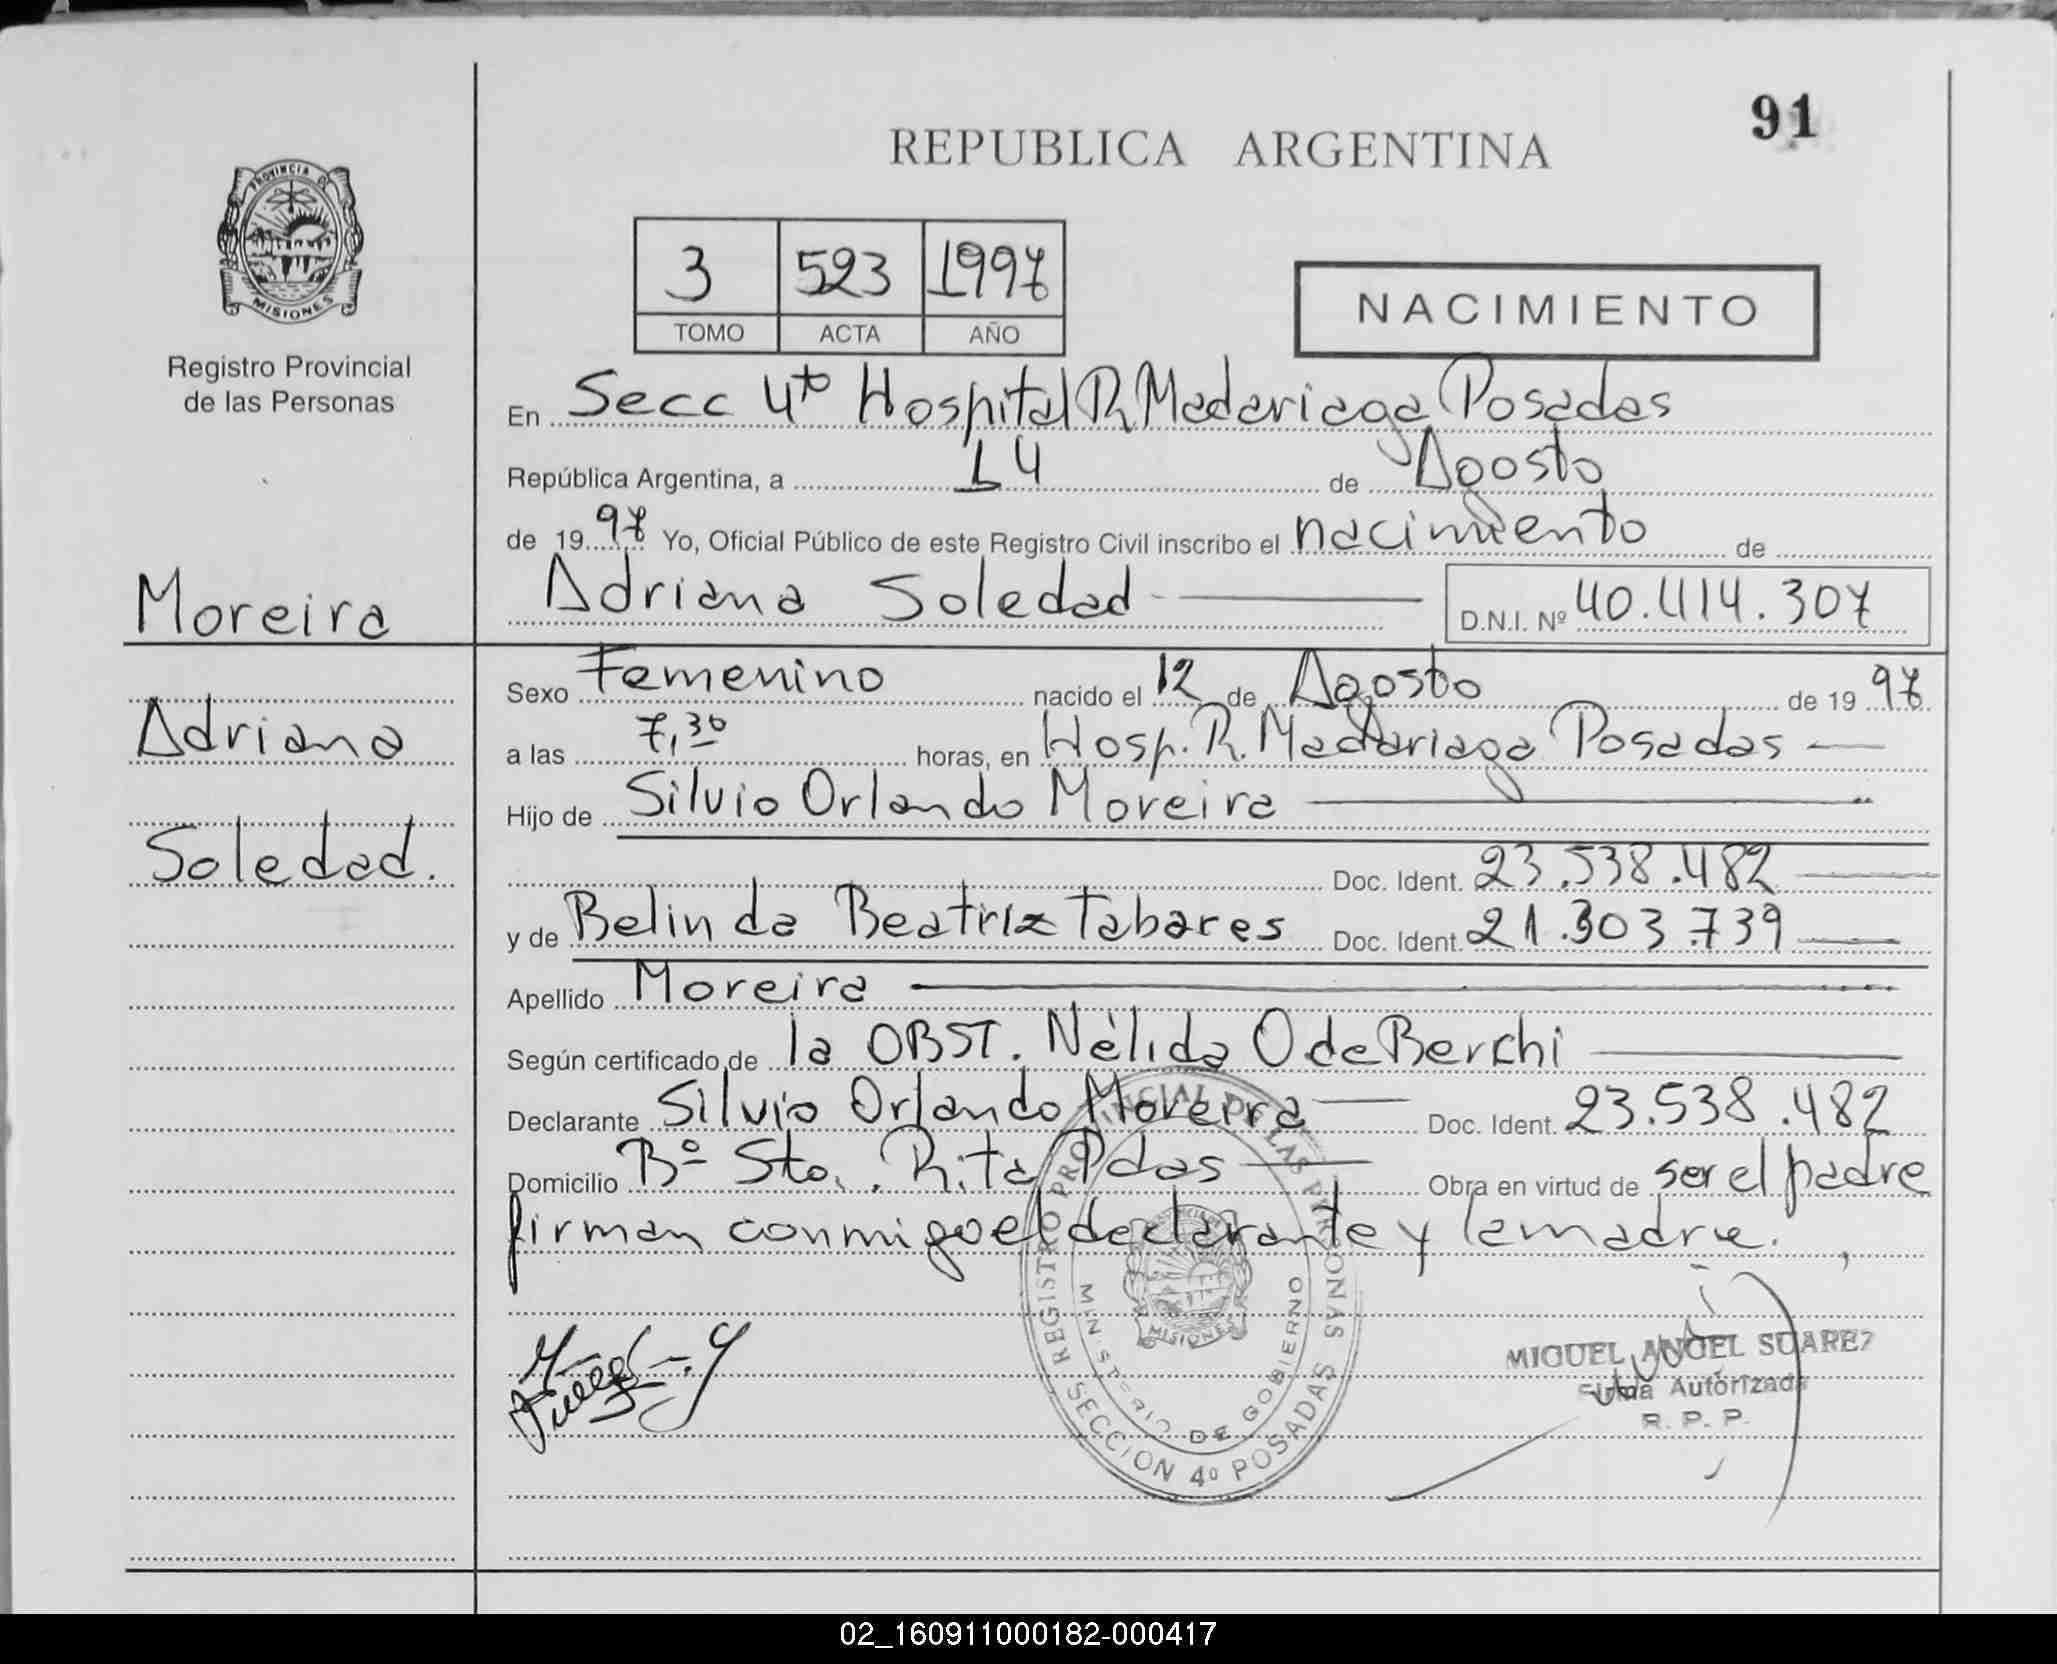 91
REPUBLICA ARGENTINA
PROVINCIA DE
MISIONES
Registro Provincial
de las Personas
3 523 1997
TOMO ACTA AÑO
NACIMIENTO
En Secc 4ta Hospital R. Madariaga Posadas
República Argentina, a 14 de Agosto
de 19 97 Yo, Oficial Público de este Registro Civil inscribo el nacimiento de
Adriana Soledad D.N.I. Nº 40.414.307
Moreira
Adriana
Soledad.
Sexo Femenino nacido el 12 de Agosto de 19 97
a las 7,30 horas, en Hosp. R. Madariaga Posadas
Hijo de Silvio Orlando Moreira
Doc. Ident. 23.538.482
y de Belinda Beatriz Tabares Doc. Ident. 21.303.739
Apellido Moreira
Según certificado de la OBST. Nélida O de Berchi
Declarante Silvio Orlando Moreira Doc. Ident. 23.538.482
Domicilio Bº Sta. Rita Pdas Obra en virtud de ser el padre
firman conmigo el declarante y la madre.
REGISTRO PROVINCIAL DE LAS PERSONAS
MINISTERIO DE GOBIERNO
MISIONES
SECCION 4º POSADAS
MIGUEL ANGEL SUAREZ
Firma Autorizada
R. P. P.
02_160911000182-000417